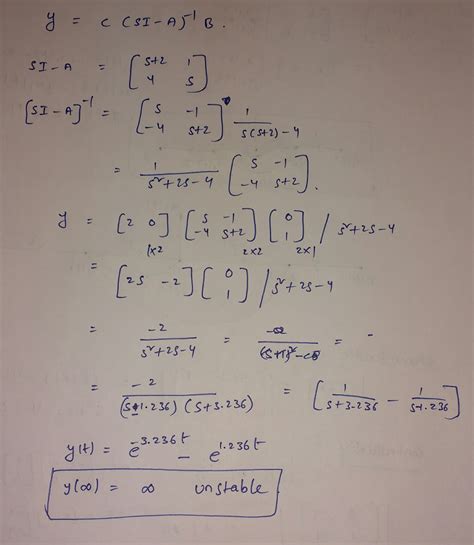 y = C (SI-A)⁻¹ B.
SI-A = [ s+2 1
4 s ]
[SI-A]⁻¹ = [ s -1
-4 s+2 ] 1 / s(s+2)-4
= 1 / s²+2s-4 [ s -1
-4 s+2 ].
y = [2 0] [ s -1
-4 s+2 ] [ 0
1 ] / s²+2s-4
1x2 2x2 2x1
= [2s -2] [ 0
1 ] / s²+2s-4
= -2 / s²+2s-4 = =
= -2 / (s-1.236) (s+3.236) = [ 1 / s+3.236 - 1 / s-1.236 ]
y(t) = e^-3.236t - e^1.236t
y(∞) = ∞ unstable